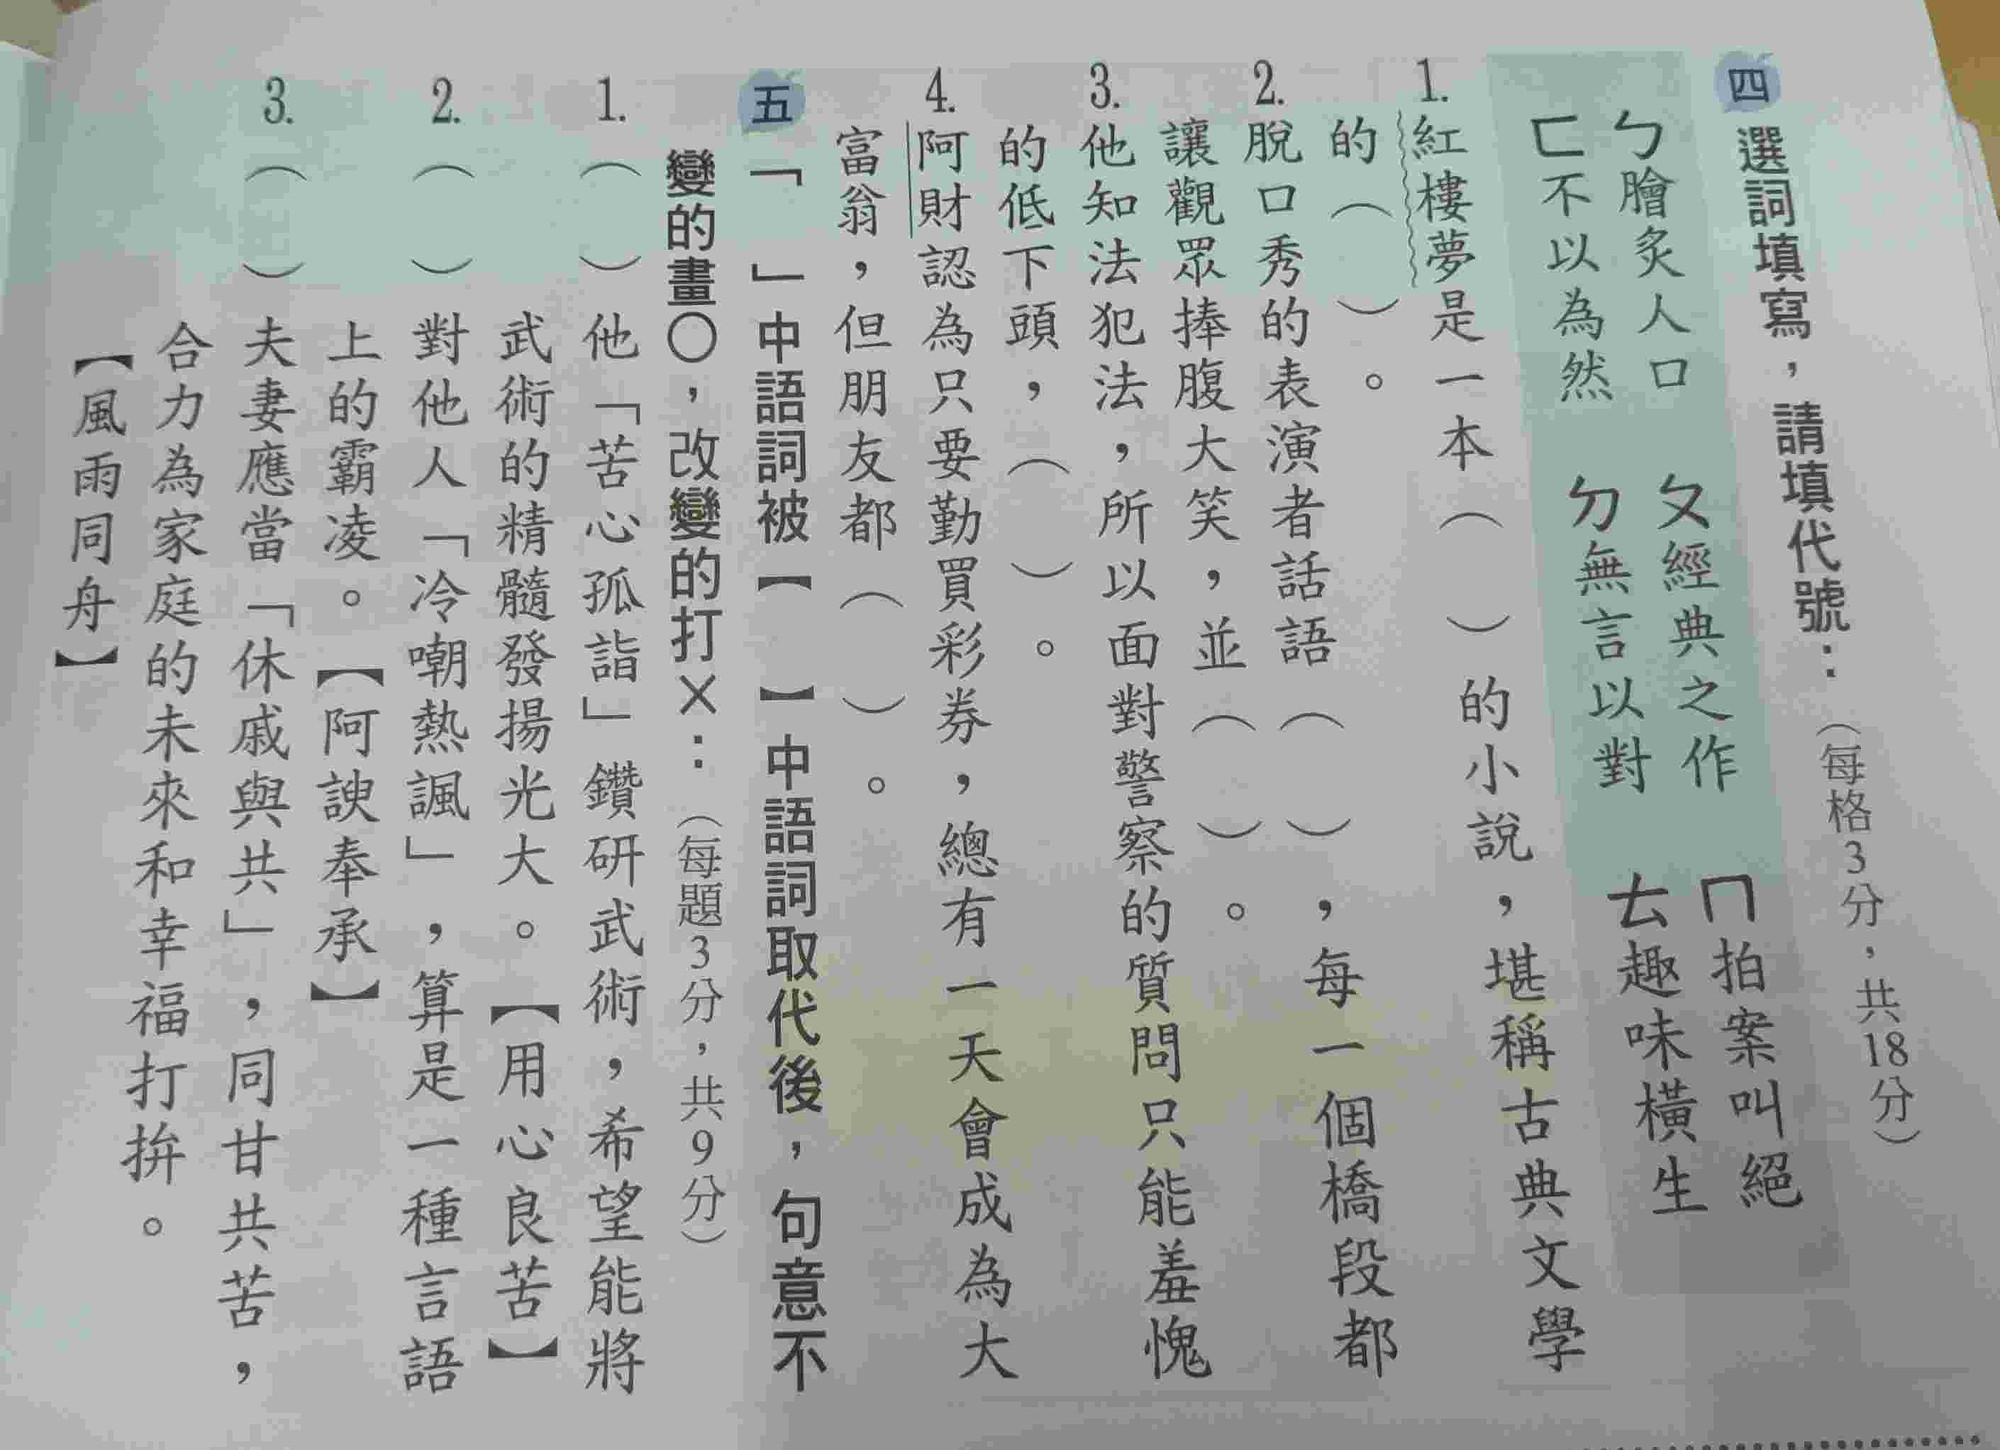 四 選詞填寫，請填代號：（每格3分，共18分）
ㄅ膾炙人口　ㄆ經典之作　ㄇ拍案叫絕
ㄈ不以為然　ㄉ無言以對　ㄊ趣味橫生
1. 紅樓夢是一本（　）的小說，堪稱古典文學
的（　）。
2. 脫口秀的表演者話語（　），每一個橋段都
讓觀眾捧腹大笑，並（　）。
3. 他知法犯法，所以面對警察的質問只能羞愧
的低下頭，（　）。
4. 阿財認為只要勤買彩券，總有一天會成為大
富翁，但朋友都（　）。
五 「　」中語詞被【　】中語詞取代後，句意不
變的畫○，改變的打×：（每題3分，共9分）
1.（　）他「苦心孤詣」鑽研武術，希望能將
武術的精髓發揚光大。【用心良苦】
2.（　）對他人「冷嘲熱諷」，算是一種言語
上的霸凌。【阿諛奉承】
3.（　）夫妻應當「休戚與共」，同甘共苦，
合力為家庭的未來和幸福打拚。
【風雨同舟】